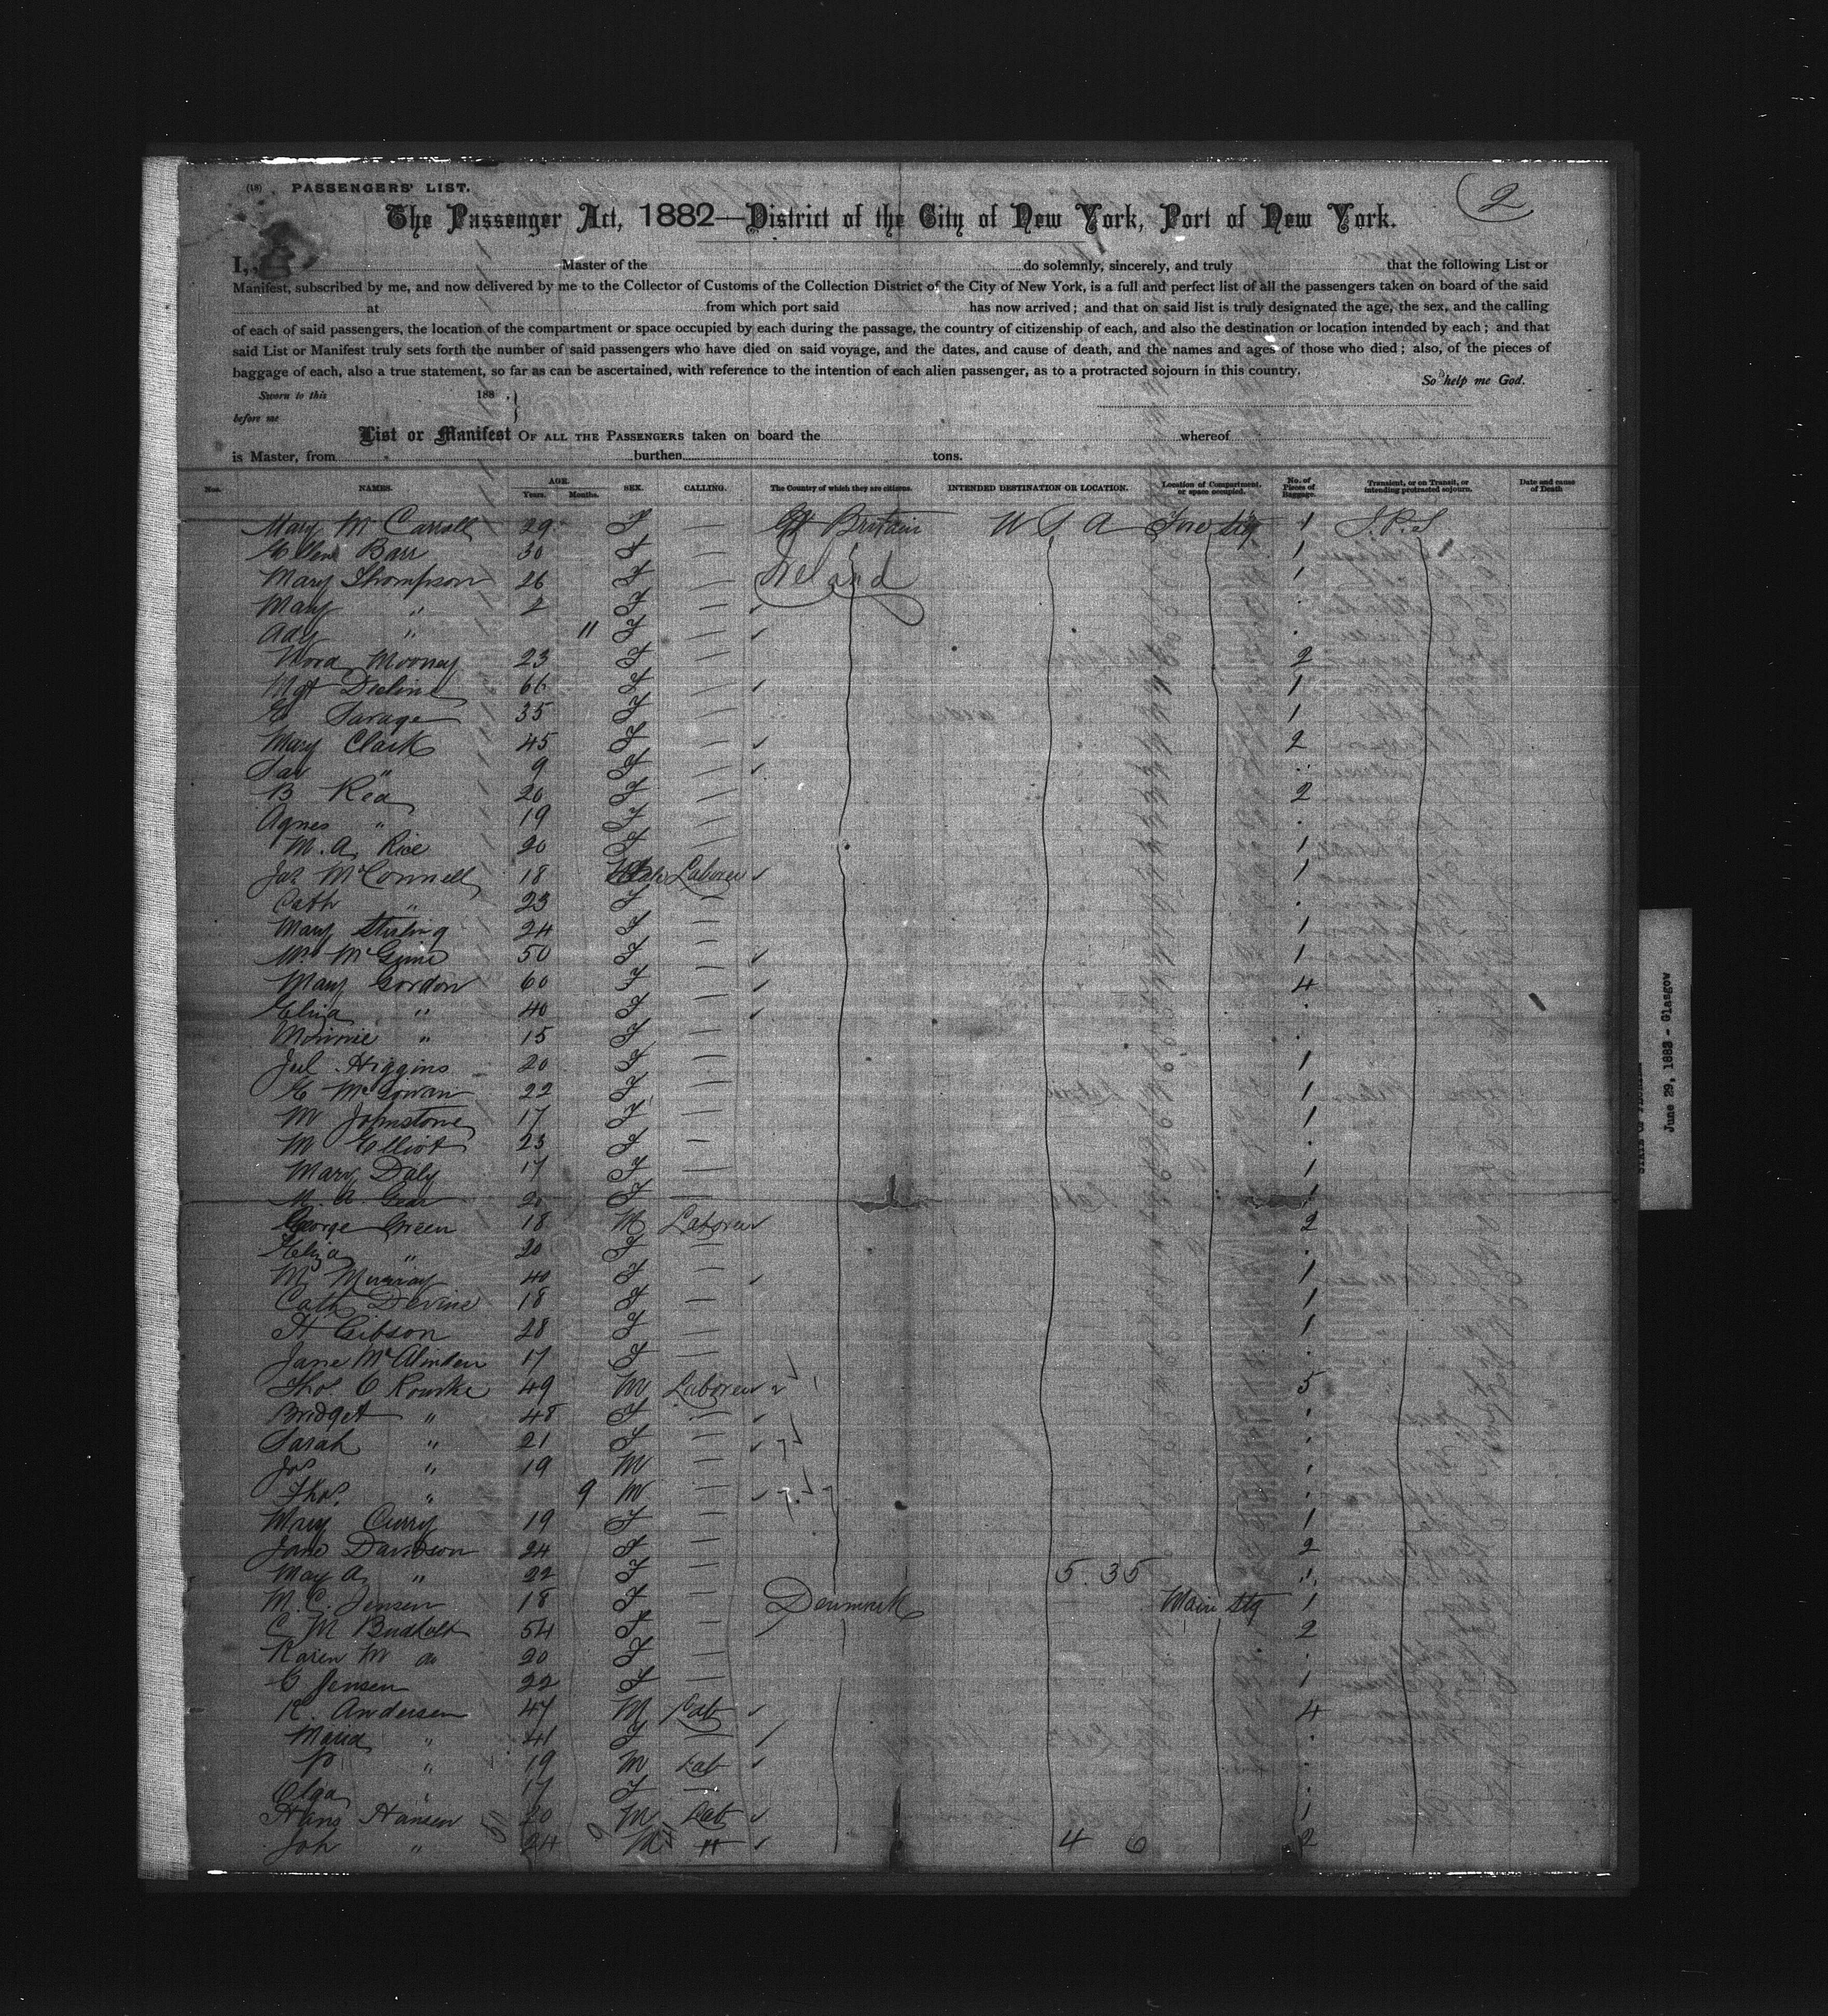 (18) PASSENGERS' LIST.
2
The Passenger Act, 1882—District of the City of New York, Port of New York.
I, Master of the do solemnly, sincerely, and truly that the following List or
Manifest, subscribed by me, and now delivered by me to the Collector of Customs of the Collection District of the City of New York, is a full and perfect list of all the passengers taken on board of the said
at from which port said has now arrived; and that on said list is truly designated the age, the sex, and the calling
of each of said passengers, the location of the compartment or space occupied by each during the passage, the country of citizenship of each, and also the destination or location intended by each; and that
said List or Manifest truly sets forth the number of said passengers who have died on said voyage, and the dates, and cause of death, and the names and ages of those who died; also, of the pieces of
baggage of each, also a true statement, so far as can be ascertained, with reference to the intention of each alien passenger, as to a protracted sojourn in this country.
So help me God.
Sworn to this 188 ,
before me
List or Manifest OF ALL THE PASSENGERS taken on board the whereof
is Master, from burthen tons.
Nos. NAMES. AGE. Years. Months. SEX. CALLING. The Country of which they are citizens. INTENDED DESTINATION OR LOCATION. Location of Compartment or space occupied. No. of Pieces of Baggage. Transient, or on Transit, or intending protracted sojourn. Date and cause of Death
Mary McCarroll 29 F — Gt Britain U S A Fore Stg 1 J.P.S
Ellen Barr 30 F — 1
Mary Thompson 26 F — Ireland 1
Mary " 2 F — ✓
Ady " 11 F — ✓
Nora Mooney 23 F — 2
Mgt Decline 66 F — ✓ 1
E Savage 35 F — 1
Mary Clark 45 F — ✓ 2
Sar " 9 F — ✓
B Rea 20 F — 2
Agnes " 19 F —
M. A. Rice 20 F — 1
Jas McConnell 18 Male Laborer ✓ 1
Cath " 23 F —
Mary Stirling 24 F — 1
Mrs McGuire 50 F — ✓ 1
Mary Gordon 60 F — ✓ 4
Eliza " 40 F — ✓
Minnie " 15 F —
Jul Higgins 20 F — 1
E McGowan 22 F — 1
M Johnstone 17 F — 1
M Elliot 23 F —
Mary Daly 17 F — 1
M. A. Gear 20 F — 1
George Green 18 M Laborer ✓ 2
Eliza " 20 F —
M Murray 40 F — ✓ 1
Cath Devine 18 F — 1
H Gibson 28 F — 1
Jane McAlinden 17 F —
Thos. O Rourke 49 M Laborer ✓ 5
Bridget " 48 F — ✓
Sarah " 21 F — ✓
Jos " 19 M —
Thos. " 9 M — ✓
Mary Curry 19 F — 1
Jane Davidson 24 F — 2
May A. " 22 F — 5 35
M. C. Jensen 18 F — Denmark Main Stg 1
C M Budholt 54 F — 2
Karen M do 20 F —
C Jensen 22 F — 1
K. Andersen 47 M Lab ✓ 4
Maria " 41 F — ✓
P " 19 M Lab ✓
Olga " 17 F —
Hans Hansen 20 M Lab ✓ 1
Joh " 24 M " ✓ 4 6 2
June 29, 1883 - Glasgow